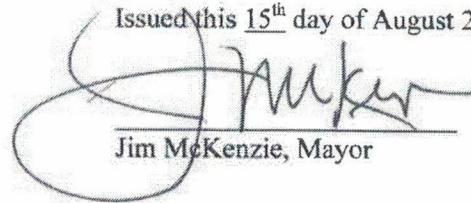 Issued this 15th day of August 2
Jim McKenzie, Mayor